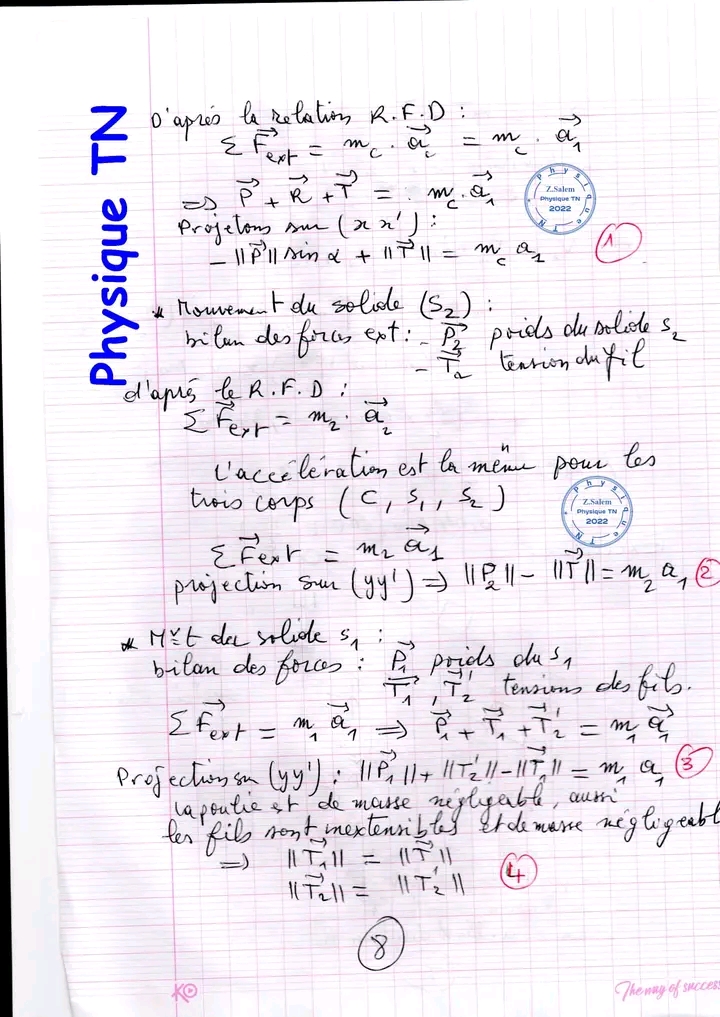 Physique TN
D'après la relation R.F.D :
Σ F⃗ext = m_c . a⃗_c = m_c . a⃗_1
=> P⃗ + R⃗ + T⃗ = m_c . a⃗_1
Physique TN
Z.Salem
Physique TN
2022
Projetons sur (xx') :
- ||P⃗|| sin α + ||T⃗|| = m_c a_1 ①
* Mouvement du solide (S_2) :
bilan des forces ext : - P⃗_2 poids du solide s_2
- T⃗_2 tension du fil
d'après le R.F.D :
Σ F⃗ext = m_2 . a⃗_2
L'accélération est la même pour les
trois corps (C, S_1, S_2)
Physique TN
Z.Salem
Physique TN
2022
Σ F⃗ext = m_2 a⃗_1
projection sur (yy') => ||P⃗_2|| - ||T⃗|| = m_2 a_1 ②
* Mvt du solide s_1 :
bilan des forces : P⃗_1 poids du s_1
T⃗_1, T⃗'_2 tensions des fils.
Σ F⃗ext = m_1 a⃗_1 => P⃗_1 + T⃗_1 + T⃗'_2 = m_1 a⃗_1
Projection su (yy') : ||P⃗_1|| + ||T⃗'_2|| - ||T⃗_1|| = m_1 a_1 ③
la poulie est de masse négligeable, aussi
les fils sont inextensibles et de masse négligeabl
=> ||T⃗_1|| = ||T⃗||
||T⃗_2|| = ||T'_2|| ④
8
K
The way of success